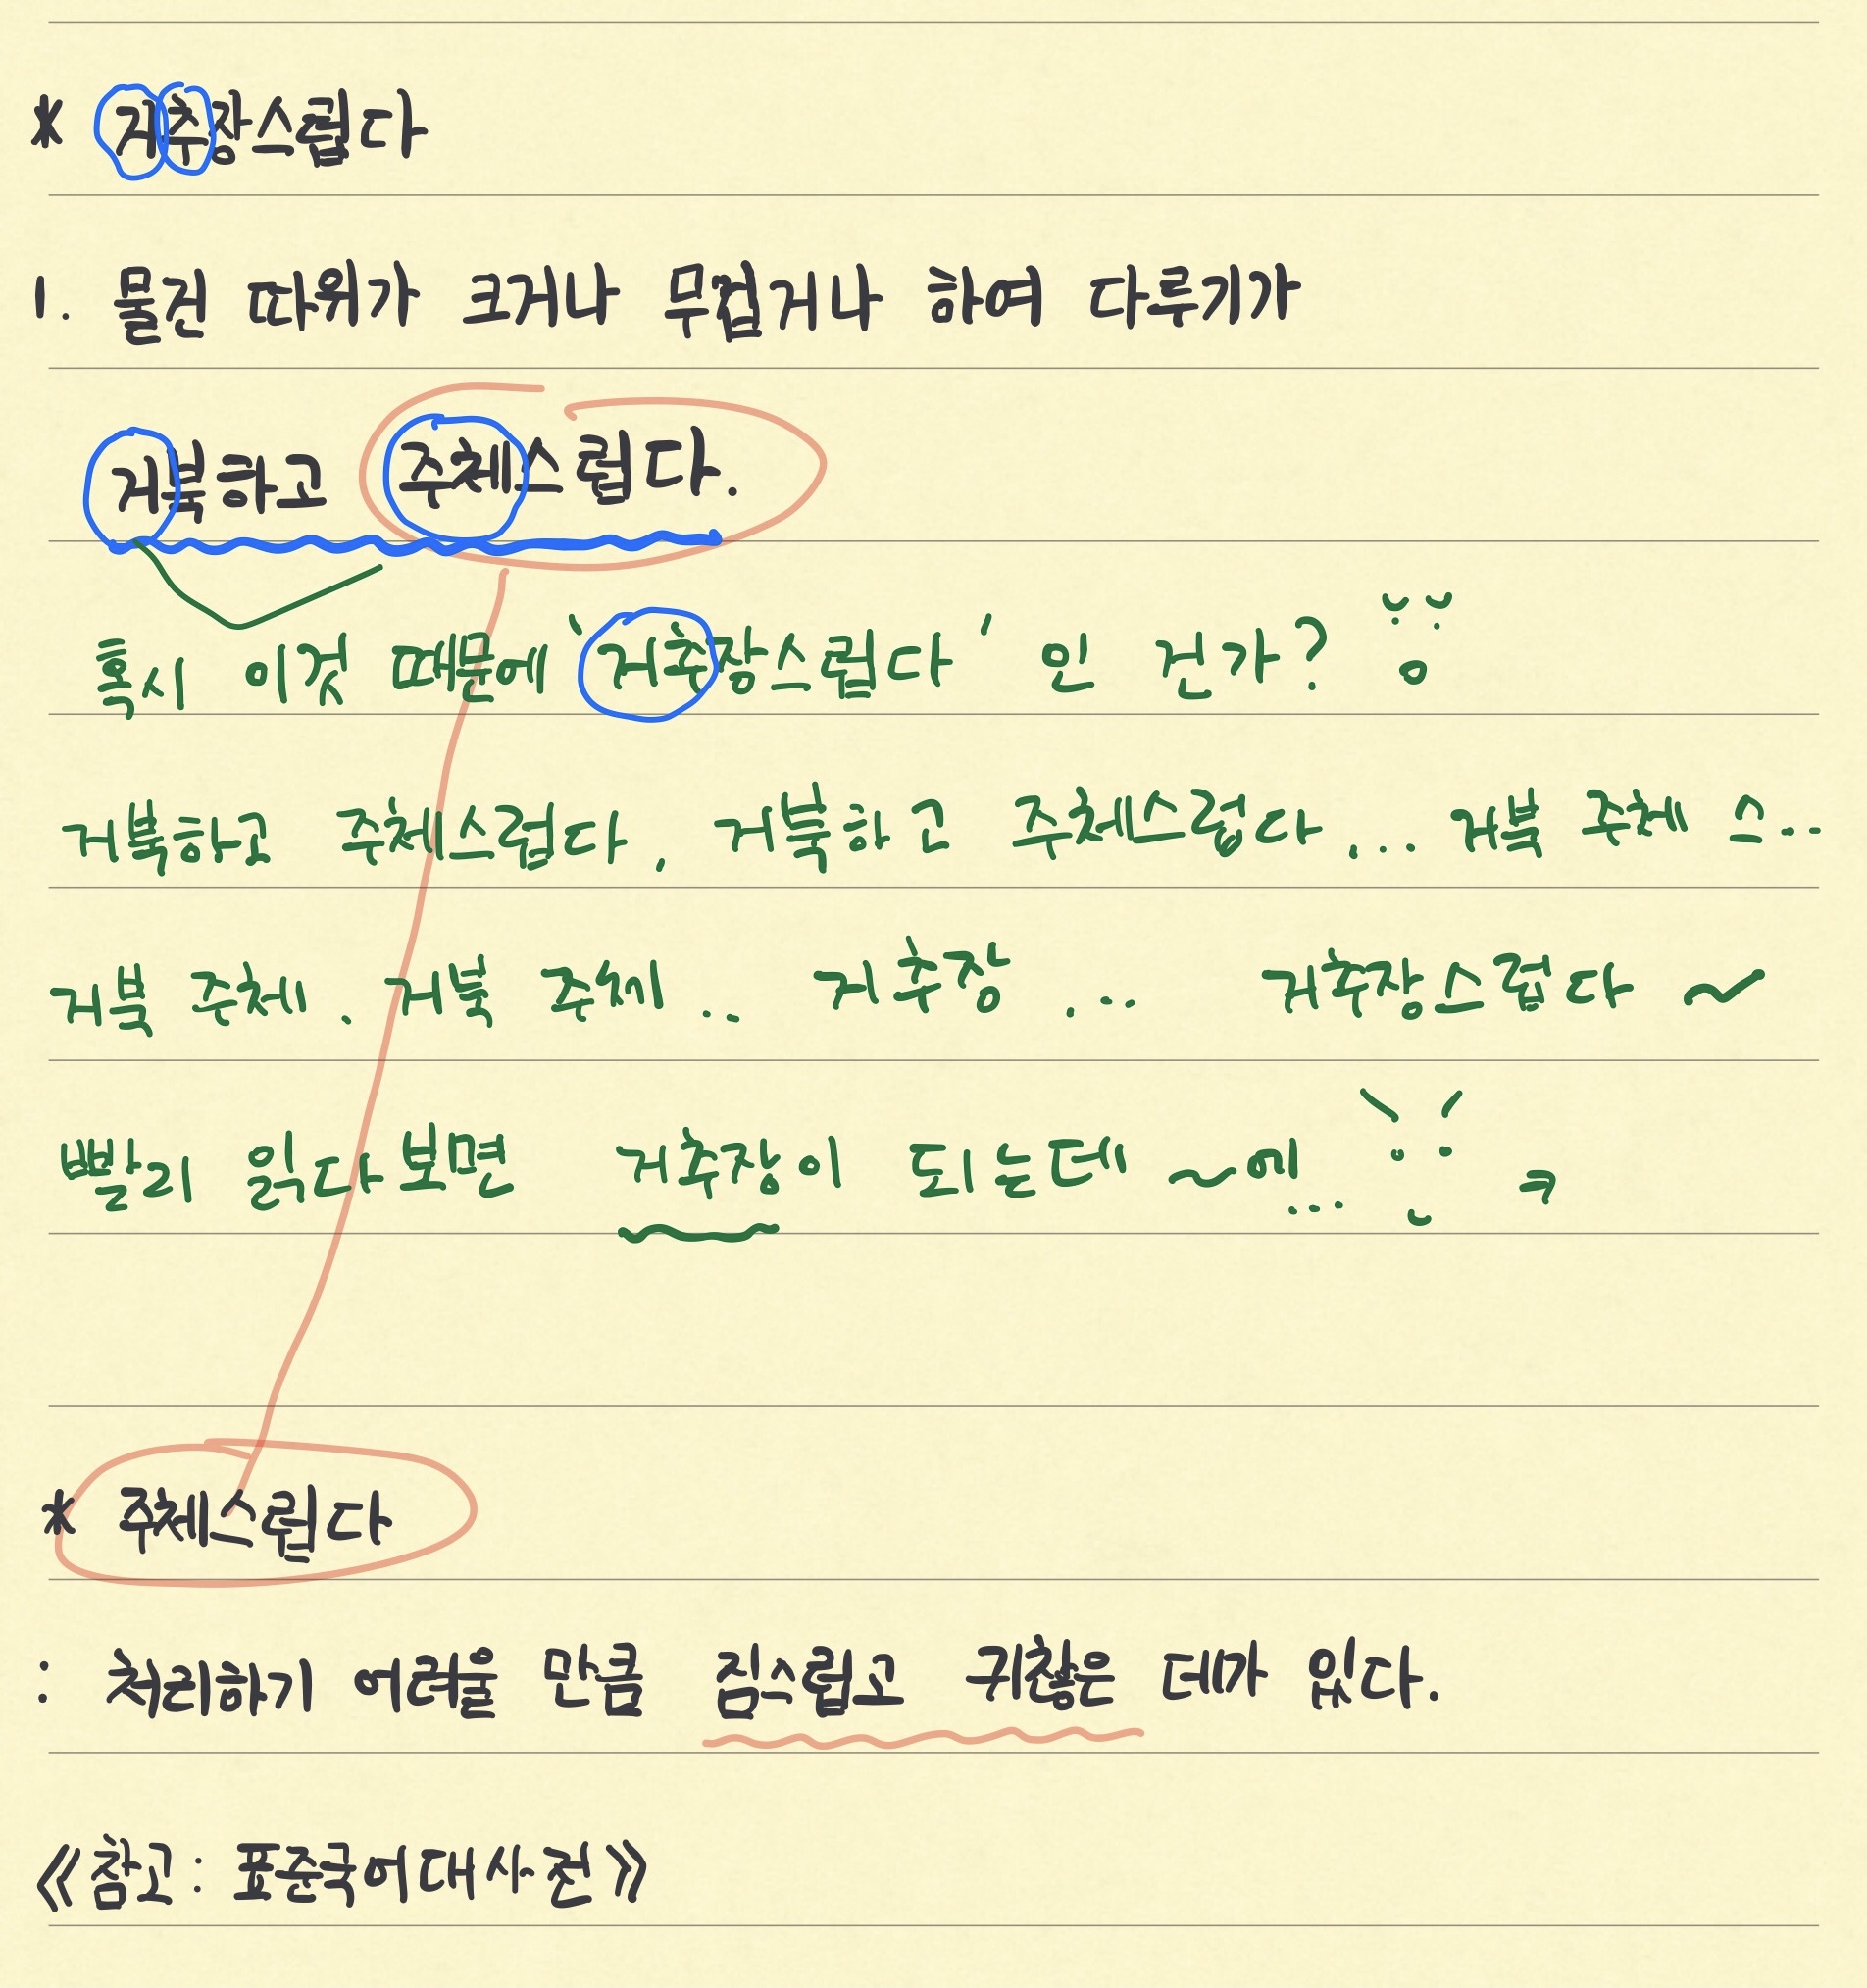 * 거추장스럽다
1. 물건 따위가 크거나 무겁거나 하여 다루기가
거북하고 주체스럽다.
혹시 이것 때문에 '거추장스럽다' 인 건가?
거북하고 주체스럽다, 거북하고 주체스럽다... 거북 주체 스..
거북 주체. 거북 주체.. 거추장... 거추장스럽다~
빨리 읽다보면 거추장이 되는데~에... ㅋ
* 주체스럽다
: 처리하기 어려울 만큼 짐스럽고 귀찮은 데가 있다.
《참고: 표준국어대사전》